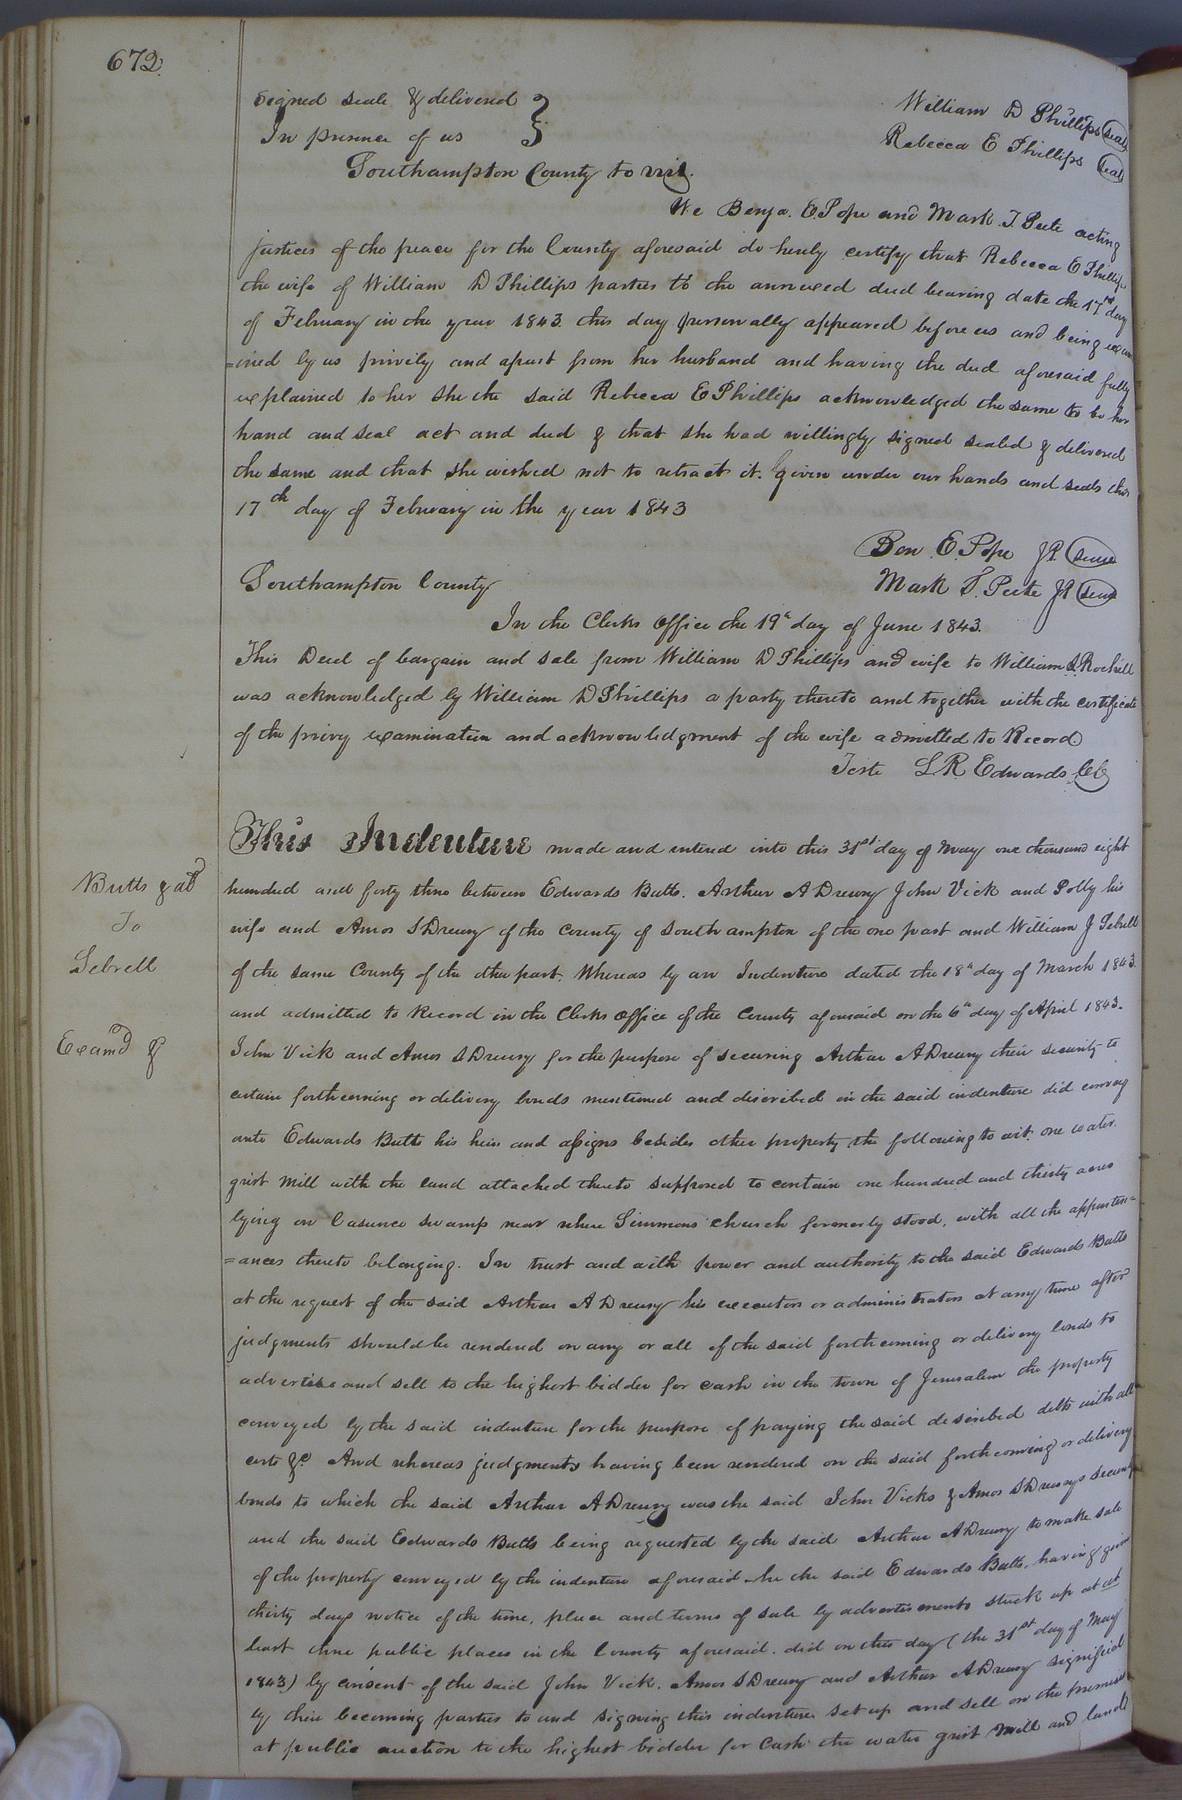 672.
Signed seale & delivered } William D Phillips seal
In presence of us } Rebecca E Phillips seal
Southampton County to wit.
We Benja. E. Pope and Mark. T. Peete acting
justices of the peace for the County aforesaid do hereby certify that Rebecca E Phillips
the wife of William D Phillips parties to the annexed deed bearing date the 17th day
of February in the year 1843. this day personally appeared before us and being exam
=ined by us privily and apart from her husband and having the deed aforesaid fully
explained to her she the said Rebecca E Phillips acknowledged the same to be her
hand and seal act and deed & that she had willingly signed sealed & delivered
the same and that she wished not to retract it. Given under our hands and seals this
17th day of February in the year 1843
Ben. E. Pope JP seal
Southampton County Mark T. Peete JP seal
In the Clerks office the 19th day of June 1843.
This Deed of bargain and sale from William D Phillips and wife to William S. Rochell
was acknowledged by William D Phillips a party thereto and together with the certificate
of the privy examination and acknowledgment of the wife admitted to Record.
Teste L R Edwards CC
This Indenture made and entered into this 31st day of May one thousand eight
Butts & als
To
Sebrell
Examd &
hundred and forty three between Edwards Butts. Arthur A Drewry John Vick and Polly his
wife and Amos S Drewry of the County of Southampton of the one part and William J Sebrell
of the same County of the other part. Whereas by an Indenture dated the 18th day of March 1843.
and admitted to Record in the Clerks office of the County aforesaid on the 6th day of April 1843.
John Vick and Amos S Drewry for the purpose of securing Arthur A Drewry their security to
certain forthcoming or delivery bonds mentioned and discribed in the said indenture did convey
unto Edwards Butts his heirs and assigns besides other property the following to wit: one water.
grist Mill with the land attached thereto supposed to contain one hundred and thirty acres
lying on Casunce swamp near where Simmons church formerly stood, with all the appurten=
=ances thereto belonging. In trust and with power and authority to the said Edwards Butts
at the request of the said Arthur A Drewry his executors or administrators at any time after
judgments should be rendered on any or all of the said forthcoming or delivery bonds to
advertise and sell to the highest bidder for cash in the town of Jerusalem the property
conveyed by the said indenture for the purpose of paying the said described debts with all
costs &c. And whereas judgments having been rendered on the said forthcoming or delivery
bonds to which the said Arthur A Drewry was the said John Vicks & Amos S Drewrys security
and the said Edwards Butts being requested by the said Arthur A Drewry to make sale
of the property conveyed by the indenture aforesaid he the said Edwards Butts. having given
thirty days notice of the time, place and terms of sale by advertisements stuck up at at
least three public places in the County aforesaid. did on this day (the 31st day of May
1843) by consent of the said John Vick. Amos S Drewry and Arthur A Drewry signified
by their becoming parties to and signing this indenture set up and sell on the premises
at public auction to the highest bidder for Cash the water grist Mill and land